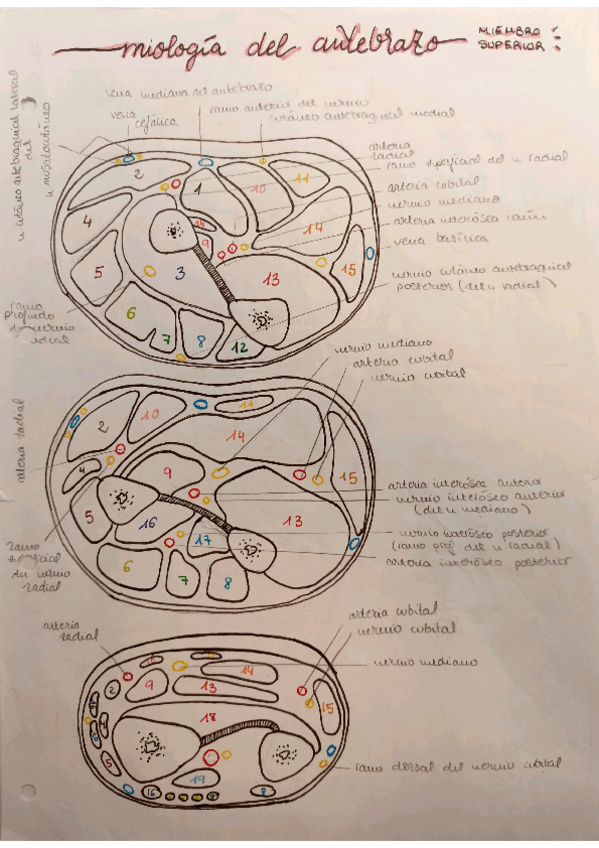 miología del antebrazo
MIEMBRO
SUPERIOR
n cutáneo antebraquial lateral
del
n musculocutáneo
vena mediana del antebrazo
vena
cefálica
ramo anterior del nervio
cutáneo antebraquial medial
arteria
radial
ramo superficial del n radial
arteria cubital
nervio mediano
arteria interósea común
vena basílica
nervio cutáneo antebraquial
posterior (del n radial)
ramo
profundo
del nervio
radial
2
1
10
11
4
14
9
14
5
3
13
15
6
7
8
12
nervio mediano
arteria cubital
nervio cubital
arteria radial
2
10
11
14
4
9
15
5
16
17
13
6
7
8
arteria interósea anterior
nervio interóseo anterior
(del n mediano)
nervio interóseo posterior
(ramo prof del n radial)
arteria interósea posterior
ramo
superficial
del nervio
radial
arteria
radial
arteria cubital
nervio cubital
nervio mediano
2
9
14
13
15
18
5
19
16
8
ramo dorsal del nervio cubital